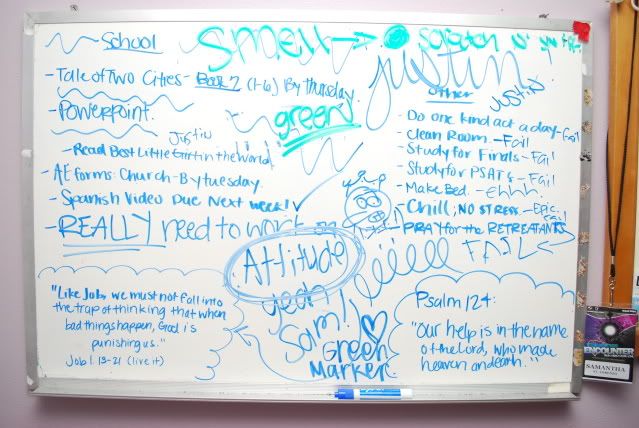 School
Smell → scratch
Justin
- Tale of Two Cities - Book 2 (1-6) By Thursday
- Powerpoint.
green
Justin
- Read Best Little Girl in the World
- AE forms: Church - By tuesday
- Spanish Video Due Next week! ✓
- REALLY need to work on
Attitude
yeah
Sam!
Green
Marker
other
Justin
- Do one kind act a day - Fail
- Clean Room. - Fail
- Study for Finals - Fail
- Study for PSATs - Fail
- Make Bed. - ehhh.
- Chill, NO STRESS - Epic Fail
- PRAY for the RETREATANTS
FAIL
"Like Job, we must not fall into
the trap of thinking that when
bad things happen, God is
punishing us."
Job 1. 13-21 (live it)
Psalm 124:
"Our help is in the name
of the Lord, who made
heaven and earth."
ENCOUNTER
SAMANTHA